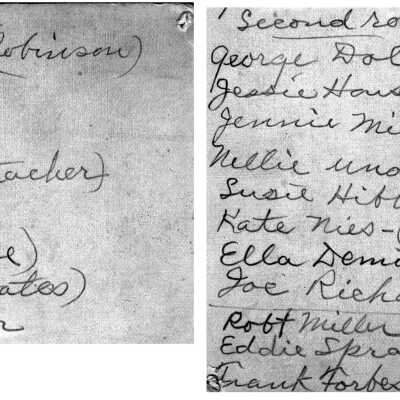 Robinson)
tacher)
e)
ates)
r
Second ro
George Dol
Jessie Haus
Jennie Mi
Nellie und
Susie Hib
Kate Nies-(
Ella Dem
Joe Richa
Robt Miller
Eddie Spra
Frank Forbes